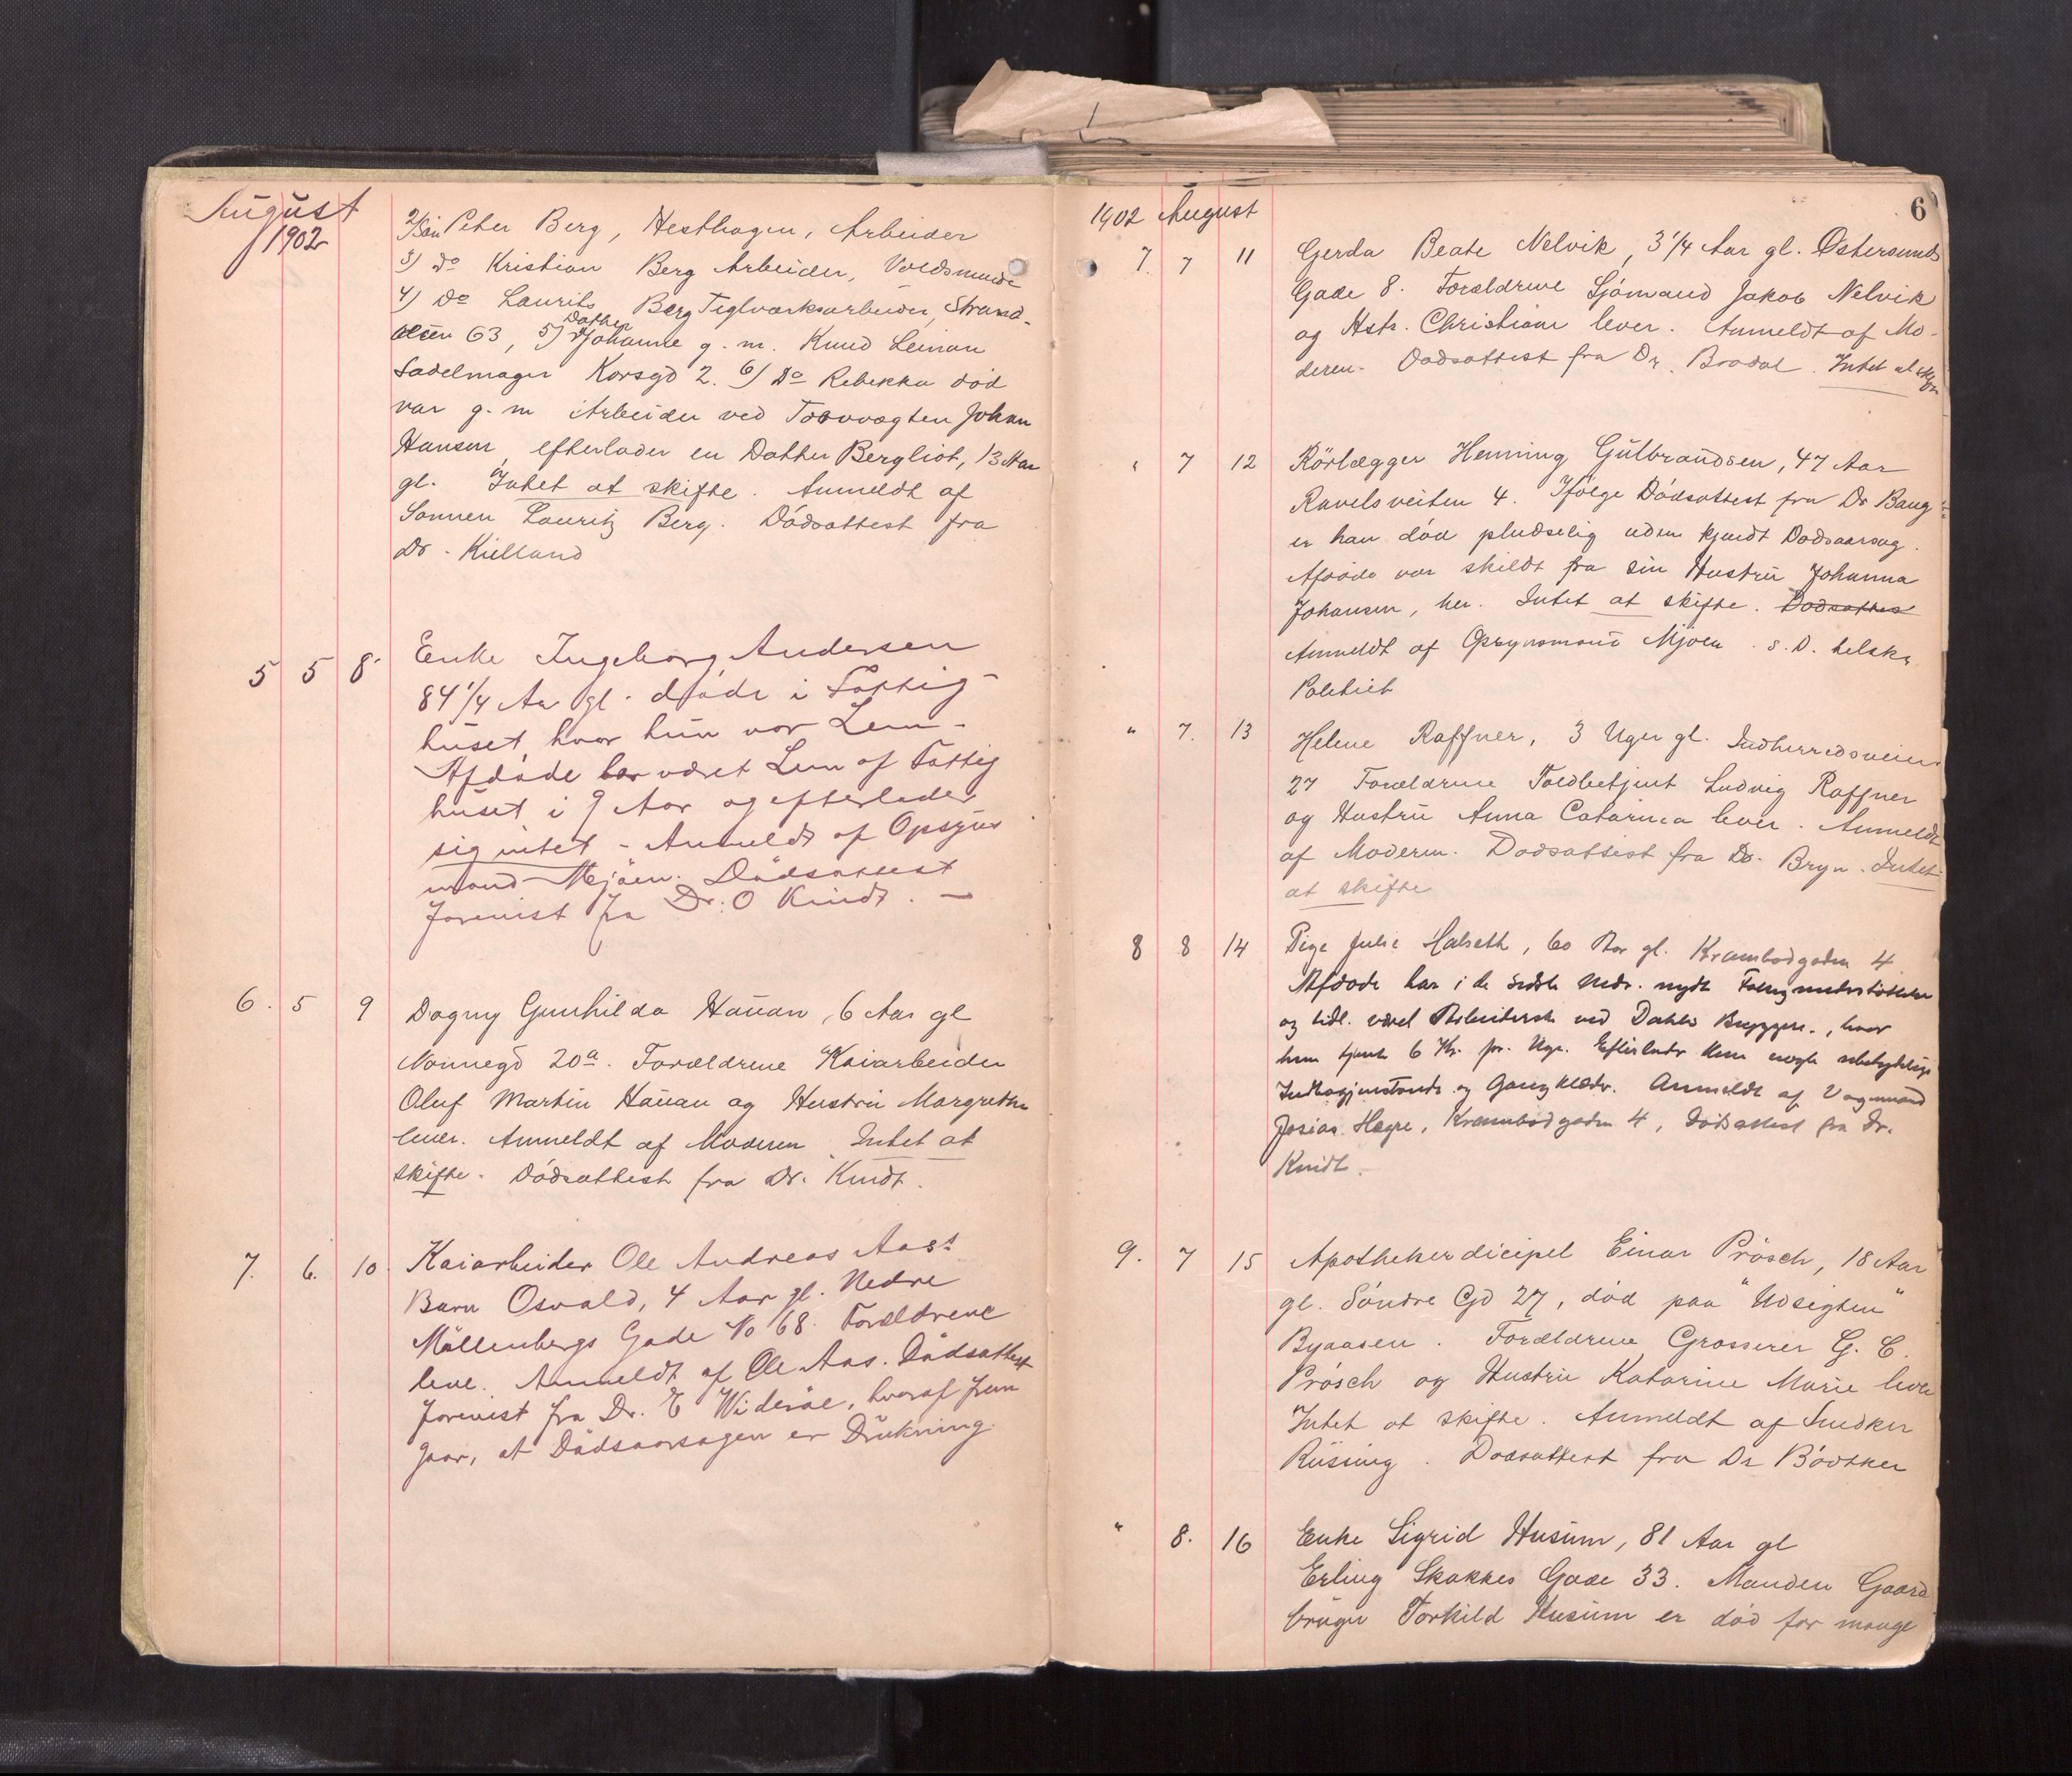 August
1902
2) Søn Peter Berg, Hesthagen, Arbeider
3) Do Kristian Berg Arbeider, Voldsminde
4) Do Laurits Berg Teglværksarbeider, Strand-
Datter
veien 63, 5) Johanne g. m. Knud Leinan
Sadelmager Korsgd 2. 6) Do Rebekka död
var g. m Arbeider ved Johan
Hansen efterlader en Datter Bergliot, 13 Aar
gl. Intet at skifte. Anmeldt af
Sønnen Lauritz Berg. Dödsattest fra
Dr. Kielland
5 5 8 Enke Ingeborg Andersen
84 1/4 Aar gl. döde i Fattig-
huset hvor hun var Lem-
Afdöde har været Lem af Fattig
huset i 9 Aar og efterlader
sig intet - Anmeldt af Opsyns
mand Mjöen. Dödsattest
forevist fra Dr. O Kindt. -
6. 5 9 Dagny Gunhilda Hauan, 6 Aar gl
Nonnegd 20a. Forældrene Kaiarbeider
Oluf Martin Hauan og Hustru Margrethe
lever. Anmeldt af Moderen Intet at
skifte. Dödsattest fra Dr. Kindt.
7. 6. 10 Kaiarbeider Ole Andreas Aas's
Barn Osvald, 4 Aar gl. Nedre
Möllenbergs Gade No 68. Forældrene
leve. Anmeldt af Ole Aas. Dödsattest
forevist fra Dr. E Wideröe, hvoraf frem
gaar, at Dödsaarsagen er Drukning.
1902 August 6
7. 7 11 Gerda Beate Nelvik, 3 1/4 Aar gl. Østersunds
Gade 8. Forældrene Sjömand Jakob Nelvik
og Hstr. Christiane lever. Anmeldt af Mo-
deren. Dødsattest fra Dr. Brodal. Intet at skifte
" 7 12 Rörlægger Henning Gulbrandsen, 47 Aar
Ravelsveiten 4. Ifölge Dödsattest fra Dr Baug
er han död pludselig uden kjendt Dødsaarsag.
Afdöde var skildt fra sin Hustru Johanna
Johansen, her. Intet at skifte. Dødsattes
Anmeldt af Opsynsmand Mjöen. s. D.
Politiet
" 7. 13 Helene Raffner, 3 Uger gl. Indherredsveien
27 Forældrene Toldbetjent Ludvig Raffner
og Hustru Anna Catarina lever. Anmeldt
af Moderen. Dødsattest fra Dr. Bryn. Intet
at skifte
8 8 14 Pige Julie Halseth, 60 Aar gl. Krambodgaden 4
Afdøde har i de sidste Mdr. nydt Fattigunderstøttelse
og tidl. været Arbeiderske ved Dahls Bryggeri, hvor
hun tjente 6 Kr. pr. Uge. Efterlader kun nogle ubetydelige
Indbogjenstande og Gangklæder. Anmeldt af Vognmand
Josias Hegre, Krambodgaden 4, Dødsattest fra Dr.
Kindt.
9. 7 15 Apothekerdicipel Einar Prösch, 18 Aar
gl. Söndre Gd 27, död paa "Udsigten"
Byaasen. Forældrene Grosserer G. C.
Prösch og Hustru Katarine Marie lever
Intet at skifte. Anmeldt af Snedker
Rüsing. Dødsattest fra Dr Bödtker
" 8. 16 Enke Sigrid Husum, 81 Aar gl
Erling Skakkes Gade 33. Manden Gaard
bruger Torkild Husum er död for mange